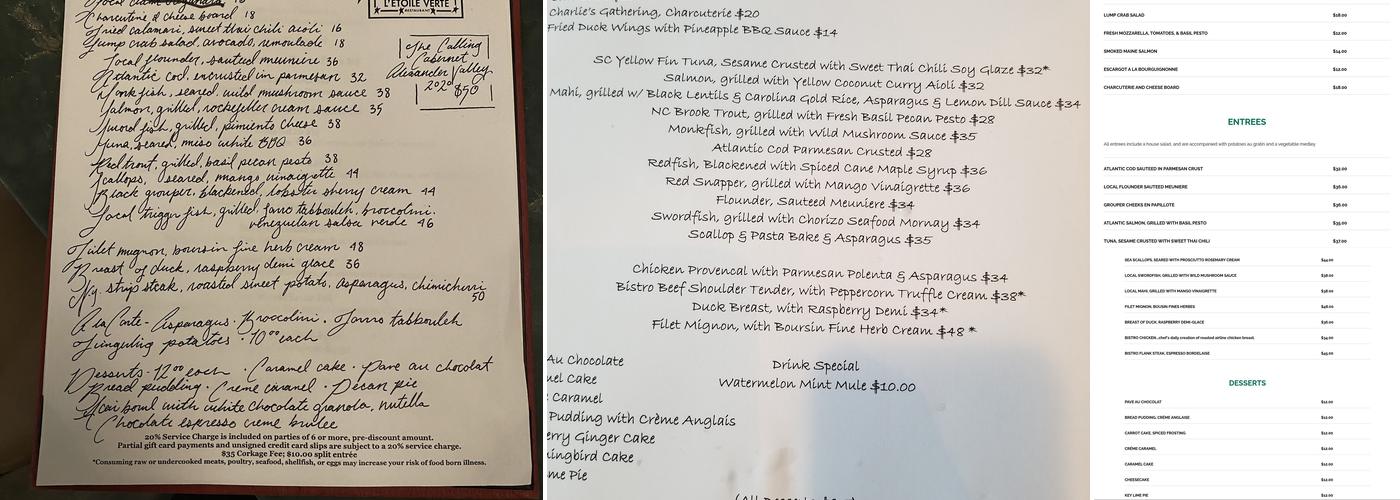 Charcuterie & cheese board 18
L'ETOILE VERTE
RESTAURANT
Fried calamari, sweet thai chili aioli 16
Lump crab salad, avocado, remoulade 18
The Calling
Cabernet
Alexander Valley
2020 $50
Local flounder, sauteed meuniere 36
Atlantic cod, encrusted in parmesan 32
Monkfish, seared, wild mushroom sauce 38
Salmon, grilled, rockefeller cream sauce 35
Sword fish, grilled, pimiento cheese 38
Tuna, seared, miso white BBQ 36
Red trout, grilled, basil pecan pesto 38
Scallops, seared, mango vinaigrette 44
Black grouper, blackened, lobster sherry cream 44
Local trigger fish, grilled, farro tabbouleh, broccolini,
venezuelan salsa verde 46
Filet mignon, boursin fine herb cream 48
Breast of duck, raspberry demi glace 36
N.y. strip steak, roasted sweet potato, asparagus, chimichurri
50
A la Carte - Asparagus · Broccolini · Farro tabbouleh
Fingerling potatoes · 10⁰⁰ each
Desserts - 12.00 each · Caramel cake · Pave au chocolat
Bread pudding · Creme caramel · Pecan pie
Acai bowl with white chocolate granola, nutella
Chocolate espresso creme brulee
20% Service Charge is included on parties of 6 or more, pre-discount amount.
Partial gift card payments and unsigned credit card slips are subject to a 20% service charge.
$35 Corkage Fee; $10.00 split entrée
*Consuming raw or undercooked meats, poultry, seafood, shellfish, or eggs may increase your risk of food born illness.
Charlie's Gathering, Charcuterie $20
Fried Duck Wings with Pineapple BBQ Sauce $14
SC Yellow Fin Tuna, Sesame Crusted with Sweet Thai Chili Soy Glaze $32*
Salmon, grilled with Yellow Coconut Curry Aioli $32
Mahi, grilled w/ Black Lentils & Carolina Gold Rice, Asparagus & Lemon Dill Sauce $34
NC Brook Trout, grilled with Fresh Basil Pecan Pesto $28
Monkfish, grilled with Wild Mushroom Sauce $35
Atlantic Cod Parmesan Crusted $28
Redfish, Blackened with Spiced Cane Maple Syrup $36
Red Snapper, grilled with Mango Vinaigrette $36
Flounder, Sauteed Meuniere $34
Swordfish, grilled with Chorizo Seafood Mornay $34
Scallop & Pasta Bake & Asparagus $35
Chicken Provencal with Parmesan Polenta & Asparagus $34
Bistro Beef Shoulder Tender, with Peppercorn Truffle Cream $38*
Duck Breast, with Raspberry Demi $34*
Filet Mignon, with Boursin Fine Herb Cream $48 *
Au Chocolate
Cake
Caramel
Pudding with Crème Anglais
Ginger Cake
Cake
Pie
Drink Special
Watermelon Mint Mule $10.00
LUMP CRAB SALAD $18.00
FRESH MOZZARELLA, TOMATOES, & BASIL PESTO $12.00
SMOKED MAINE SALMON $14.00
ESCARGOT A LA BOURGUIGNONNE $12.00
CHARCUTERIE AND CHEESE BOARD $18.00
ENTREES
All entrees include a house salad, and are accompanied with potatoes au gratin and a vegetable medley
ATLANTIC COD SAUTEED IN PARMESAN CRUST $32.00
LOCAL FLOUNDER SAUTEED MEUNIERE $36.00
GROUPER CHEEKS EN PAPILLOTE $36.00
ATLANTIC SALMON, GRILLED WITH BASIL PESTO $35.00
TUNA, SESAME CRUSTED WITH SWEET THAI CHILI $37.00
SEA SCALLOPS, SEARED WITH PROSCIUTTO ROSEMARY CREAM $44.00
LOCAL SWORDFISH, GRILLED WITH WILD MUSHROOM SAUCE $38.00
LOCAL MAHI, GRILLED WITH MANGO VINAIGRETTE $38.00
FILET MIGNON, BOUSIN FINES HERBES $48.00
BREAST OF DUCK, RASPBERRY DEMI-GLACE $36.00
BISTRO CHICKEN...chef's daily creation of roasted airline chicken breast. $34.00
BISTRO FLANK STEAK, ESPRESSO BORDELAISE $45.00
DESSERTS
PAVE AU CHOCOLAT $12.00
BREAD PUDDING, CRÈME ANGLAISE $12.00
CARROT CAKE, SPICED FROSTING $12.00
CRÈME CARAMEL $12.00
CARAMEL CAKE $12.00
CHEESECAKE $12.00
KEY LIME PIE $12.00